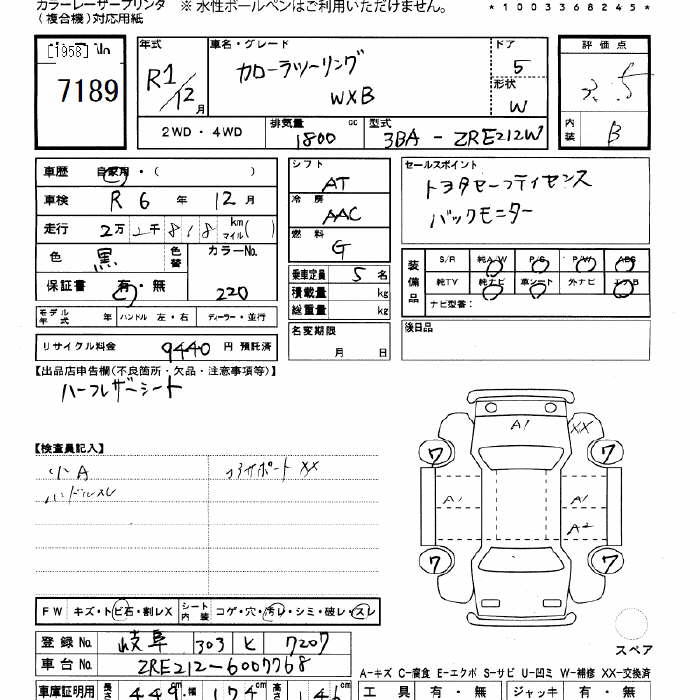 カラーレーザープリンタ ※ 水性ボールペンはご利用いただけません。
(複合機)対応用紙
*1003368245*
[1958] No
7189
年式 車名・グレード ドア 評価点
R1/12月 カローラツーリング 5 3.5
WXB 形状 W
2WD・4WD 排気量 1800 cc 型式 3BA-ZRE212W 内装 B
車歴 自家用・( )
車検 R6年 12月
走行 2万2千818 km マイル( )
色 黒 色替 カラーNo. 220
保証書 有・無
モデル年式 年 ハンドル 左・右 ディーラー・並行
リサイクル料金 9440 円 預託済
シフト AT
冷房 AAC
燃料 G
乗車定員 5 名
積載量 kg
総重量 kg
名変期限
月 日
セールスポイント
トヨタセーフティセンス
バックモニター
装備品 S/R 純A/W P/S P/W ABS
純TV 純ナビ 革シート 外ナビ エアB
ナビ型番:
後日品
【出品店申告欄(不良箇所・欠品・注意事項等)】
ハーフレザーシート
【検査員記入】
小A コアサポートXX
ハンドルスレ
A1 XX
7 7
A1 A1
A2
7 7
スペア
FW キズ・トビ石・割レX シート内装 コゲ・穴・汚レ・シミ・破レ・スレ
登録No. 岐阜 303 と 7207
車台No. ZRE212-6007768
A-キズ C-腐食 E-エクボ S-サビ U-凹ミ W-補修 XX-交換済
車庫証明用 長さ 449 cm 幅 174 cm 高さ 146 cm 工具 有・無 ジャッキ 有・無